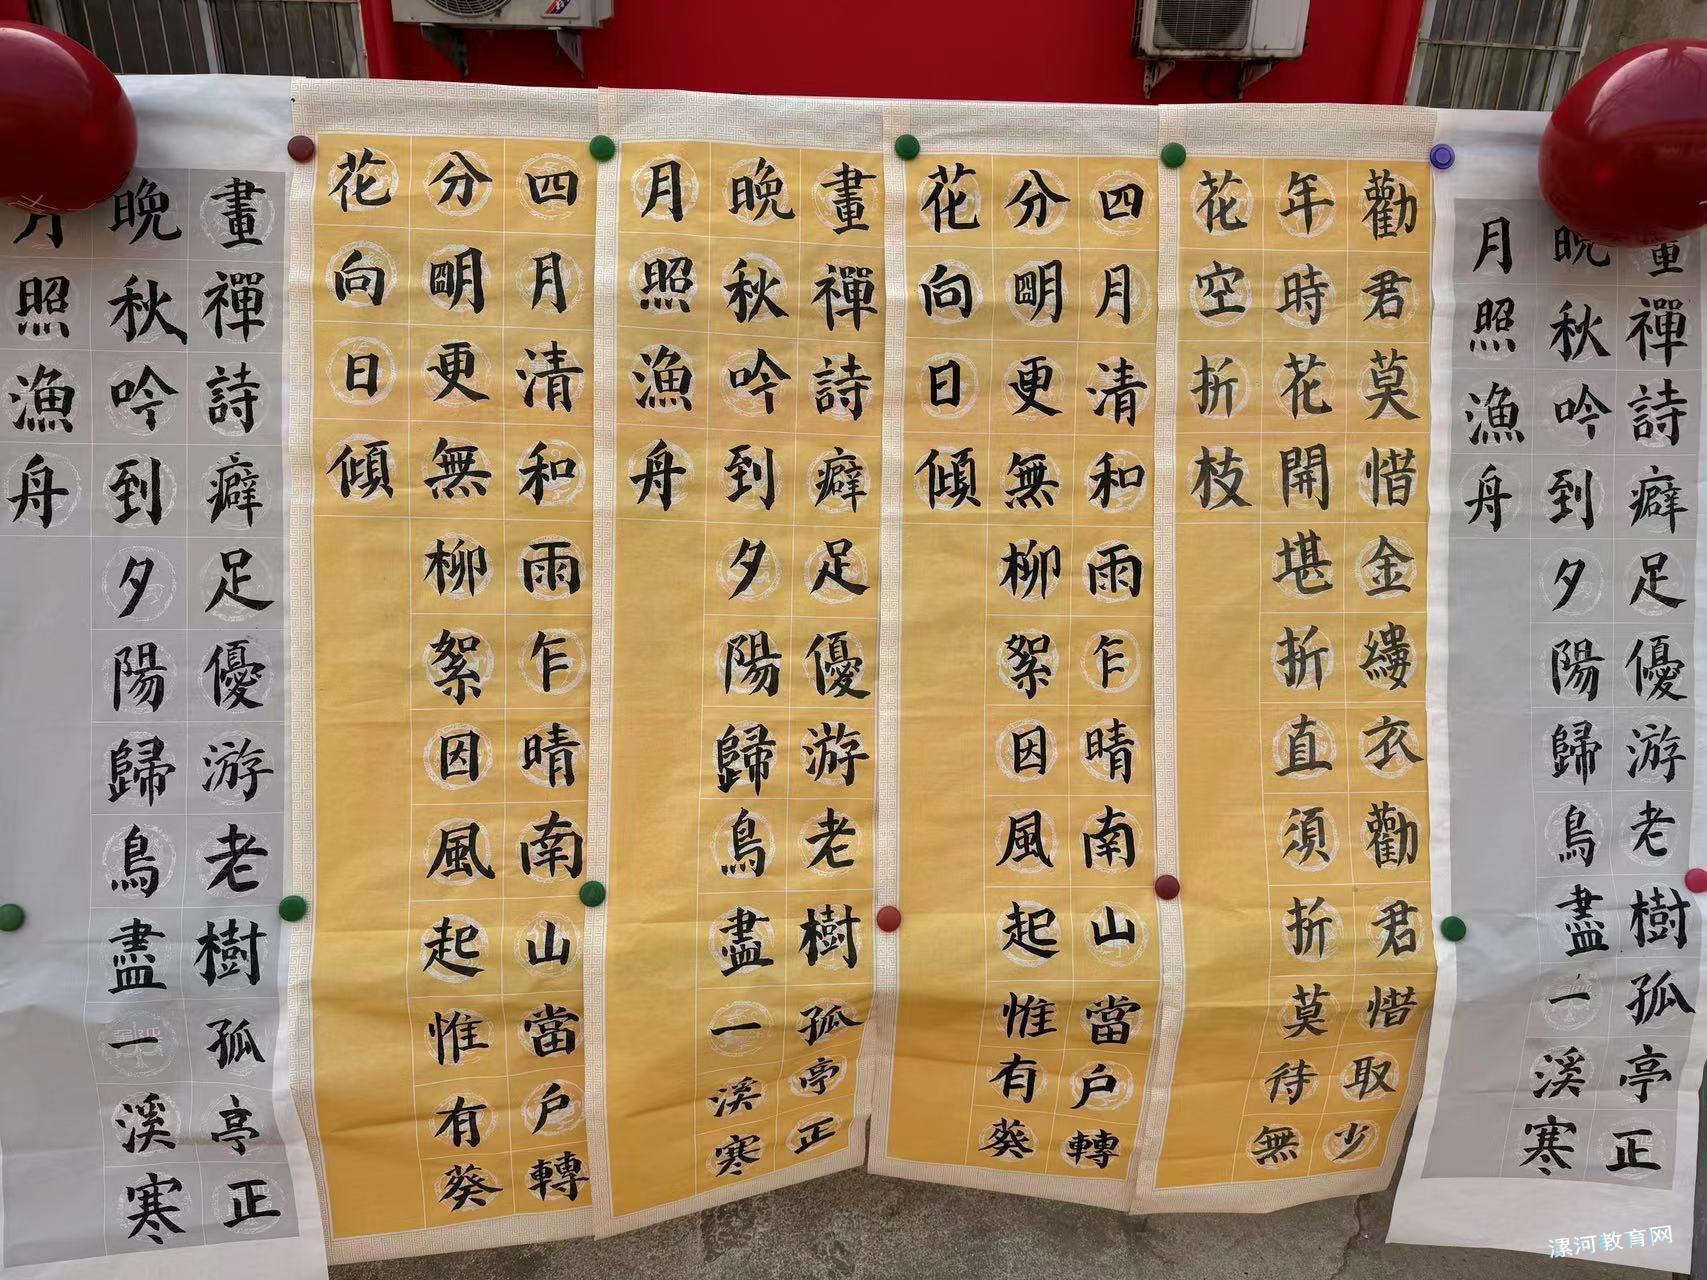 畫禪詩癖足優游老樹孤亭正
晚秋吟到夕陽歸鳥盡一溪寒
月照漁舟
勸君莫惜金縷衣勸君惜取少
年時花開堪折直須折莫待無
花空折枝
四月清和雨乍晴南山當户轉
分明更無柳絮因風起惟有葵
花向日傾
畫禪詩癖足優游老樹孤亭正
晚秋吟到夕陽歸鳥盡一溪寒
月照漁舟
四月清和雨乍晴南山當户轉
分明更無柳絮因風起惟有葵
花向日傾
畫禪詩癖足優游老樹孤亭正
晚秋吟到夕陽歸鳥盡一溪寒
月照漁舟
漯河教育网